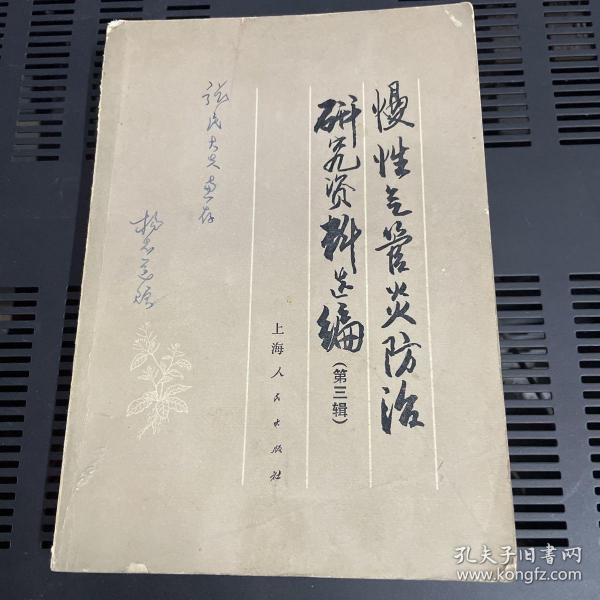 慢性气管炎防治
研究资料选编
(第三辑)
上海人民出版社
张民大夫惠存
孔夫子旧书网
www.kongfz.com